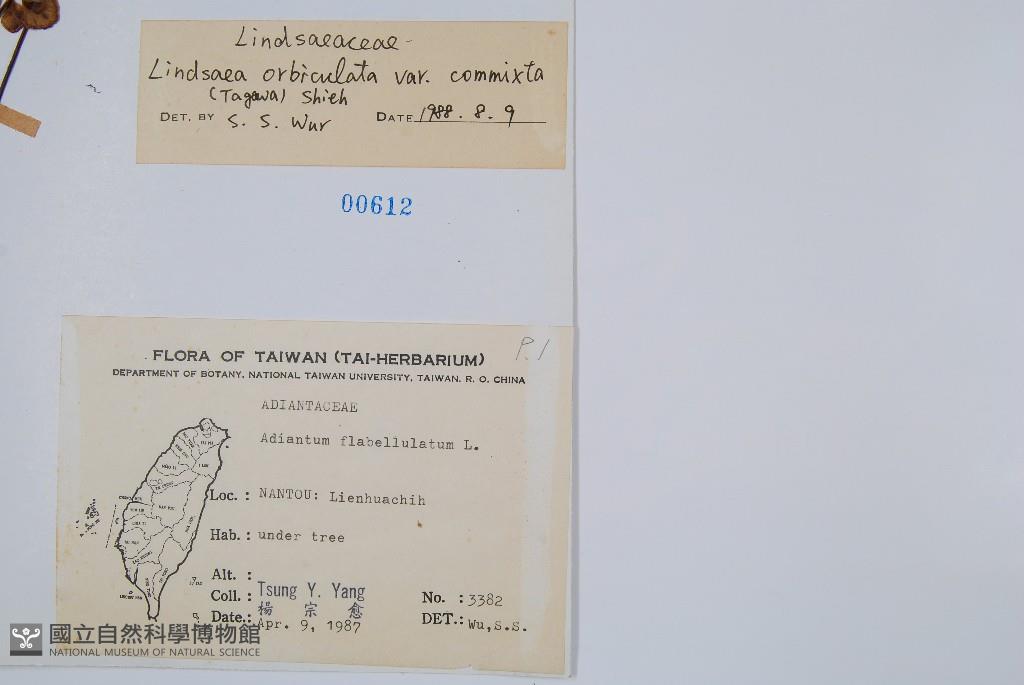 Lindsaeaceae-
Lindsaea orbiculata var. commixta
(Tagawa) Shieh
DET. BY S. S. Wur DATE 1988. 8. 9
00612
P.1
FLORA OF TAIWAN (TAI-HERBARIUM)
DEPARTMENT OF BOTANY, NATIONAL TAIWAN UNIVERSITY, TAIWAN, R. O. CHINA
ADIANTACEAE
Adiantum flabellulatum L.
Loc. : NANTOU: Lienhuachih
Hab. : under tree
Alt. :
Coll. : Tsung Y. Yang No. : 3382
楊宗愈
Date.: Apr. 9, 1987 DET.: Wu,S.S.
國立自然科學博物館
NATIONAL MUSEUM OF NATURAL SCIENCE